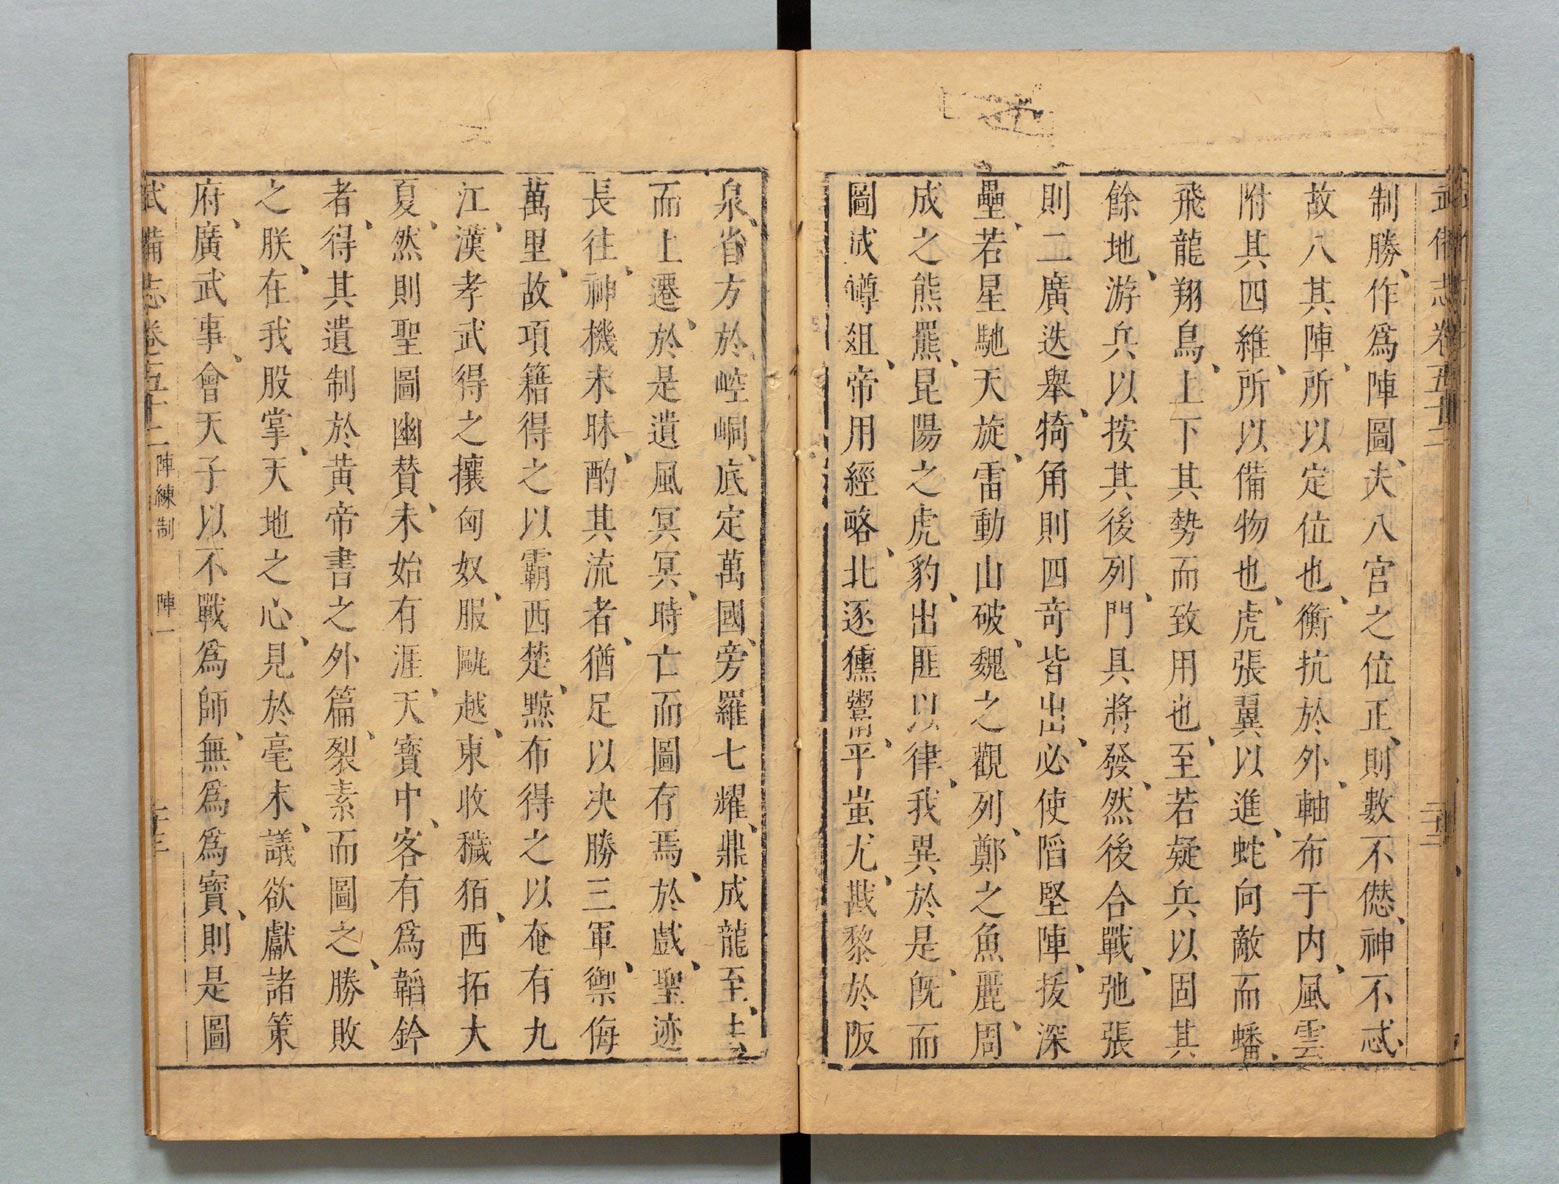 武備志卷五十二
制勝作爲陣圖夫八宮之位正則數不僁神不忒
故八其陣所以定位也衡抗於外軸布于内風雲
附其四維所以備物也虎張翼以進蛇向敵而蟠
飛龍翔鳥上下其勢而致用也至若疑兵以固其
餘地游兵以按其後列門具將發然後合戰弛張
則二廣迭舉犄角則四竒皆出必使䧟堅陣拔深
壘若星馳天旋雷動山破魏之觀列鄭之魚麗周
成之熊羆昆陽之虎豹出匪以律我異於是旣而
圖成罇俎帝用經略北逐獯鬻平蚩尤戡黎於阪
泉省方於崆峒底定萬國旁羅七耀鼎成龍至去
而上遷於是遺風冥冥時亡而圖存焉於戲聖迹
長往神機未昧酌其流者猶足以决勝三軍禦侮
萬里故項籍得之以霸西楚黥布得之以奄有九
江漢孝武得之攘匈奴服甌越東收穢貊西拓大
夏然則聖圖幽賛未始有涯天寶中客有爲韜鈐
者得其遺制於黄帝書之外篇裂素而圖之勝敗
之朕在我股掌天地之心見於毫末議欲獻諸策
府廣武事會天子以不戰爲師無爲爲寶則是圖
武備志卷五十二 陣練制 陣一